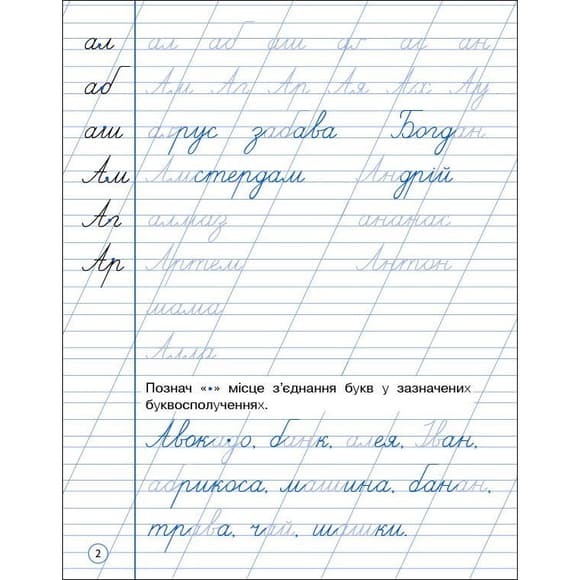 ал ал аб аш аг ан
аб Ам Аг Ар Ая Ау
аш забава Богдан
Ам Амстердам Андрій
Аг алмаз ананас
Ар Артем Антон
мама
Алла
Познач «•» місце з’єднання букв у зазначених
буквосполученнях.
Авокадо, банк, алея, Іван,
абрикоса, машина, банан,
трава, чай, шашки.
2